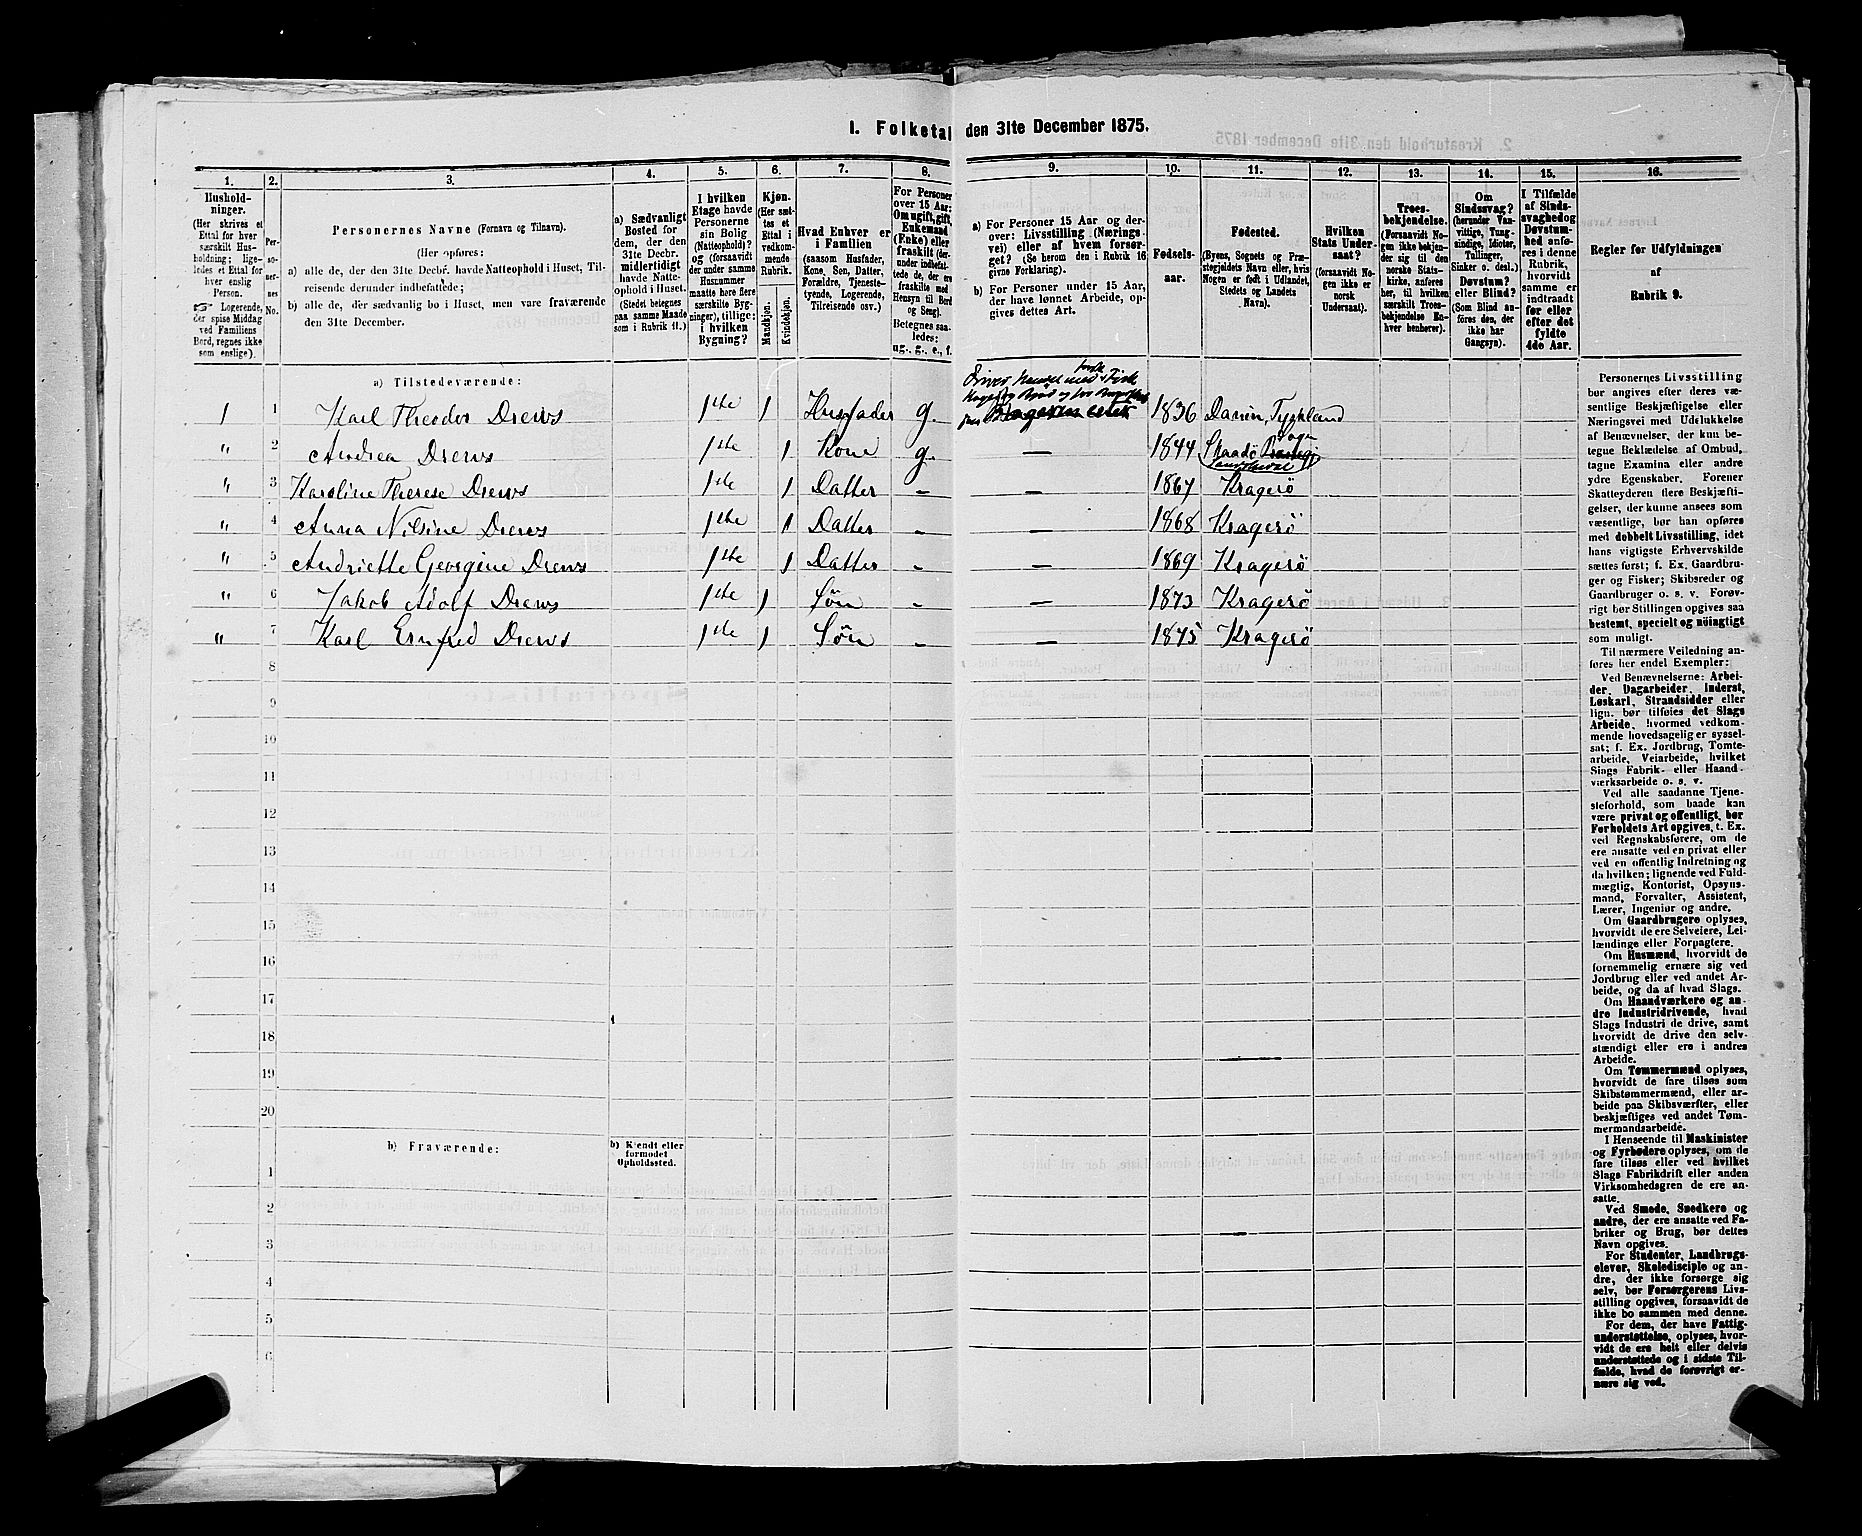 1. Folketal den 31te December 1875.
1.
Hushold-
ninger.
(Her skrives et
Ettal for hver
særskilt Hus-
holdning; lige-
ledes et Ettal for
hver enslig
Person.
☞ Logerende,
der spise Middag
ved Familiens
Bord, regnes ikke
som enslige).
2.
Per-
so-
ner-
nes
No.
3.
Personernes Navne (Fornavn og Tilnavn).
(Her opføres:
a) alle de, der den 31te Decbr. havde Natteophold i Huset, Til-
reisende derunder indbefattede;
b) alle de, der sædvanlig bo i Huset, men vare fraværende
den 31te December.
4.
a) Sædvanligt
Bosted for
dem, der den
31te Decbr.
midlertidigt
havde Natte-
ophold i Huset.
(Stedet betegnes
paa samme Maade
som i Rubrik 11.)
5.
I hvilken
Etage havde
Personerne
sin Bolig
(Natteophold)?
og (forsaavidt
der under samme
Husnummer
maatte høre flere
særskilte Byg-
ninger), tillige:
i hvilken
Bygning?
6.
Kjøn.
(Her sæt-
tes et
Ettal i
vedkom-
mende
Rubrik.
Mandkjøn.
Kvindekjøn.
7.
Hvad Enhver er
i Familien
(saasom Husfader,
Kone, Søn, Datter,
Forældre, Tjeneste-
tyende, Logerende,
Tilreisende osv.)
8.
For Personer
over 15 Aar:
Om ugift, gift,
Enkemand
(Enke) eller
fraskilt (der-
under indbefat-
tede de, der ere
fraskilte med
Hensyn til Bord
og Seng).
Betegnes saa-
ledes:
ug., g., e., f.
9.
a) For Personer 15 Aar og der-
over: Livsstilling (Nærings-
vei) eller af hvem forsør-
get? (Se herom den i Rubrik 16
givne Forklaring).
b) For Personer under 15 Aar,
der have lønnet Arbeide, op-
gives dettes Art.
10.
Fødsels-
aar.
11.
Fødested.
(Byens, Sognets og Præs-
tegjeldets Navn eller, hvis
Nogen er født i Udlandet,
Stedets og Landets
Navn).
12.
Hvilken
Stats Under-
saat?
(forsaavidt No-
gen ikke er
norsk
Undersaat).
13.
Troes-
bekjendelse.
(Forsaavidt No-
gen ikke bekjen-
der sig til den
norske Stats-
kirke, anføres
her, til hvilken
særskilt Troes-
bekjendelse En-
hver henhører).
14.
Om
Sindssvag?
(herunder Van-
vittige, Tung-
sindige, Idioter,
Tullinger,
Sinker o. desl.)
Døvstum?
eller Blind?
(Som Blind an-
føres den, der
ikke har
Gangsyn).
15.
I Tilfælde
af Sinds-
svaghed og
Døvstum-
hed anfø-
res i denne
Rubrik,
hvorvidt
samme er
indtraadt
før eller
efter det
fyldte
4de Aar.
16.
Regler for Udfyldningen
af
Rubrik 9.
a) Tilstedeværende:
1 1 Karl Theodor Drews 1ste 1 Husfader g. 1836
" 2 Andrea Drews 1ste 1 Kone g. — 1844 Skaadø
" 3 Karoline Therese Drews 1ste 1 Datter - — 1867 Kragerö
" 4 Anna Nilsine Drews 1ste 1 Datter - — 1868 Kragerö
" 5 Andriette Georgine Drews 1ste 1 Datter - — 1869 Kragerö
" 6 Jakob Adolf Drews 1ste 1 Søn - — 1873 Kragerö
" 7 Karl Ernfred Drews 1ste 1 Søn - — 1875 Kragerö
8
9
10
11
12
13
14
15
16
17
18
19
20
b) Fraværende:
b) Kjendt eller
formodet
Opholdssted.
1
2
3
4
5
6
Personernes Livsstilling
bør angives efter deres væ-
sentlige Beskjæftigelse eller
Næringsvei med Udelukkelse
af Benævnelser, der kun be-
tegne Beklædelse af Ombud,
tagne Examina eller andre
ydre Egenskaber. Forener
Skatteyderen flere Beskjæfti-
gelser, der kunne ansees som
væsentlige, bør han opføres
med dobbelt Livsstilling, idet
hans vigtigste Erhvervskilde
sættes først; f. Ex. Gaardbru-
ger og Fisker; Skibsreder og
Gaardbruger o. s. v. Forøv-
rigt bør Stillingen opgives saa
bestemt, specielt og nøiagtigt
som muligt.
Til nærmere Veiledning an-
føres her endel Exempler:
Ved Benævnelserne: Arbei-
der, Dagarbeider, Inderst,
Løskarl, Strandsidder eller
lign. bør tilføies det Slags
Arbeide, hvormed vedkom-
mende hovedsagelig er syssel-
sat; f. Ex. Jordbrug, Tomte-
arbeide, Veiarbeide, hvilket
Slags Fabrik- eller Haand-
værksarbeide o. s. v.
Ved alle saadanne Tjene-
steforhold, som baade kan
være privat og offentligt, bør
Forholdets Art opgives, t. Ex.
ved Regnskabsførere, om de
ere ansatte ved en privat eller
ved en offentlig Indretning og
da hvilken; lignende ved Fuld-
mægtig, Kontorist, Opsyns-
mand, Forvalter, Assistent,
Lærer, Ingeniør og andre.
Om Gaardbrugere oplyses,
hvorvidt de ere Selveiere, Lei-
lændinge eller Forpagtere.
Om Husmænd, hvorvidt de
fornemmelig ernære sig ved
Jordbrug eller ved andet Ar-
beide, og da af hvad Slags.
Om Haandværkere og an-
dre Industridrivende, hvad
Slags Industri de drive, samt
hvorvidt de drive den selv-
stændigt eller ere i andres
Arbeide.
Om Tømmermænd oplyses,
hvorvidt de fare tilsøs som
Skibstømmermænd, eller ar-
beide paa Skibsværfter, eller
beskjæftiges ved andet Tøm-
mermandsarbeide.
I Henseende til Maskinister
og Fyrbødere oplyses, om de
fare tilsøs eller ved hvilket
Slags Fabrikdrift eller anden
Virksomhedsgren de ere an-
satte.
Ved Smede, Snedkere og
andre, der ere ansatte ved Fa-
briker og Brug, bør dettes
Navn opgives.
For Studenter, Landbrugs-
elever, Skoledisciple og an-
dre, der ikke forsørge sig
selv, bør Forsørgerens Livs-
stilling opgives, forsaavidt de
ikke bo sammen med denne.
For dem, der have Fattig-
understøttelse, oplyses, hvor-
vidt de ere helt eller delvis
understøttede og i sidste Til-
fælde, hvad de forøvrigt er-
nære sig ved.